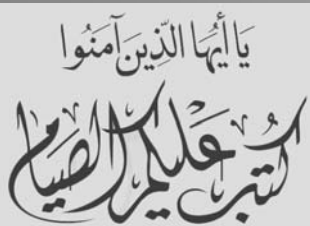 يَا أَيُّهَا الَّذِينَ آمَنُوا
كُتِبَ عَلَيْكُمُ الصِّيَامُ